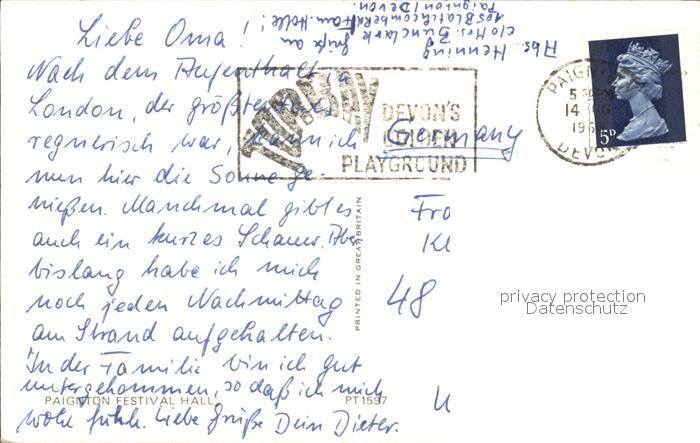 Abs. Henning
c/o Mrs. Bunclark
105 Blatchcombe Rd
Paignton / Devon.
Grüße an Fam. Holle!
Liebe Oma!
Nach dem Aufenthalt in
London, der größtenteils
regnerisch war, kann ich
nun hier die Sonne ge-
nießen. Manchmal gibt es
auch ein kurzes Schauer. Aber
bislang habe ich mich
noch jeden Nachmittag
am Strand aufgehalten.
In der Familie bin ich gut
untergekommen, so daß ich mich
wohl fühle. Liebe Grüße Dein Dieter.
TORBAY
DEVON'S
GOLDEN
PLAYGROUND
PAIGNTON
14 AUG
196
DEVON
5D
Germany
Fra
Kl
48
PRINTED IN GREAT BRITAIN
privacy protection
Datenschutz
PAIGNTON FESTIVAL HALL
PT1597